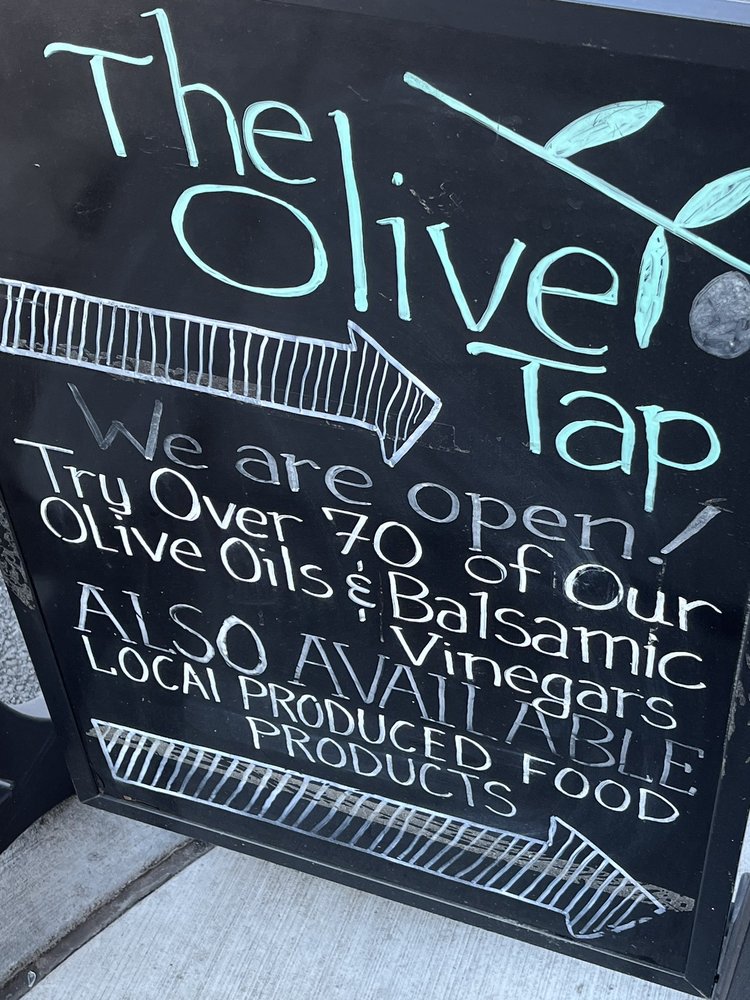 The
Olive
Tap
We are open!
Try Over 70 of Our
Olive Oils & Balsamic
Vinegars
ALSO AVAILABLE
LOCAl PRODUCED FOOD
PRODUCTS